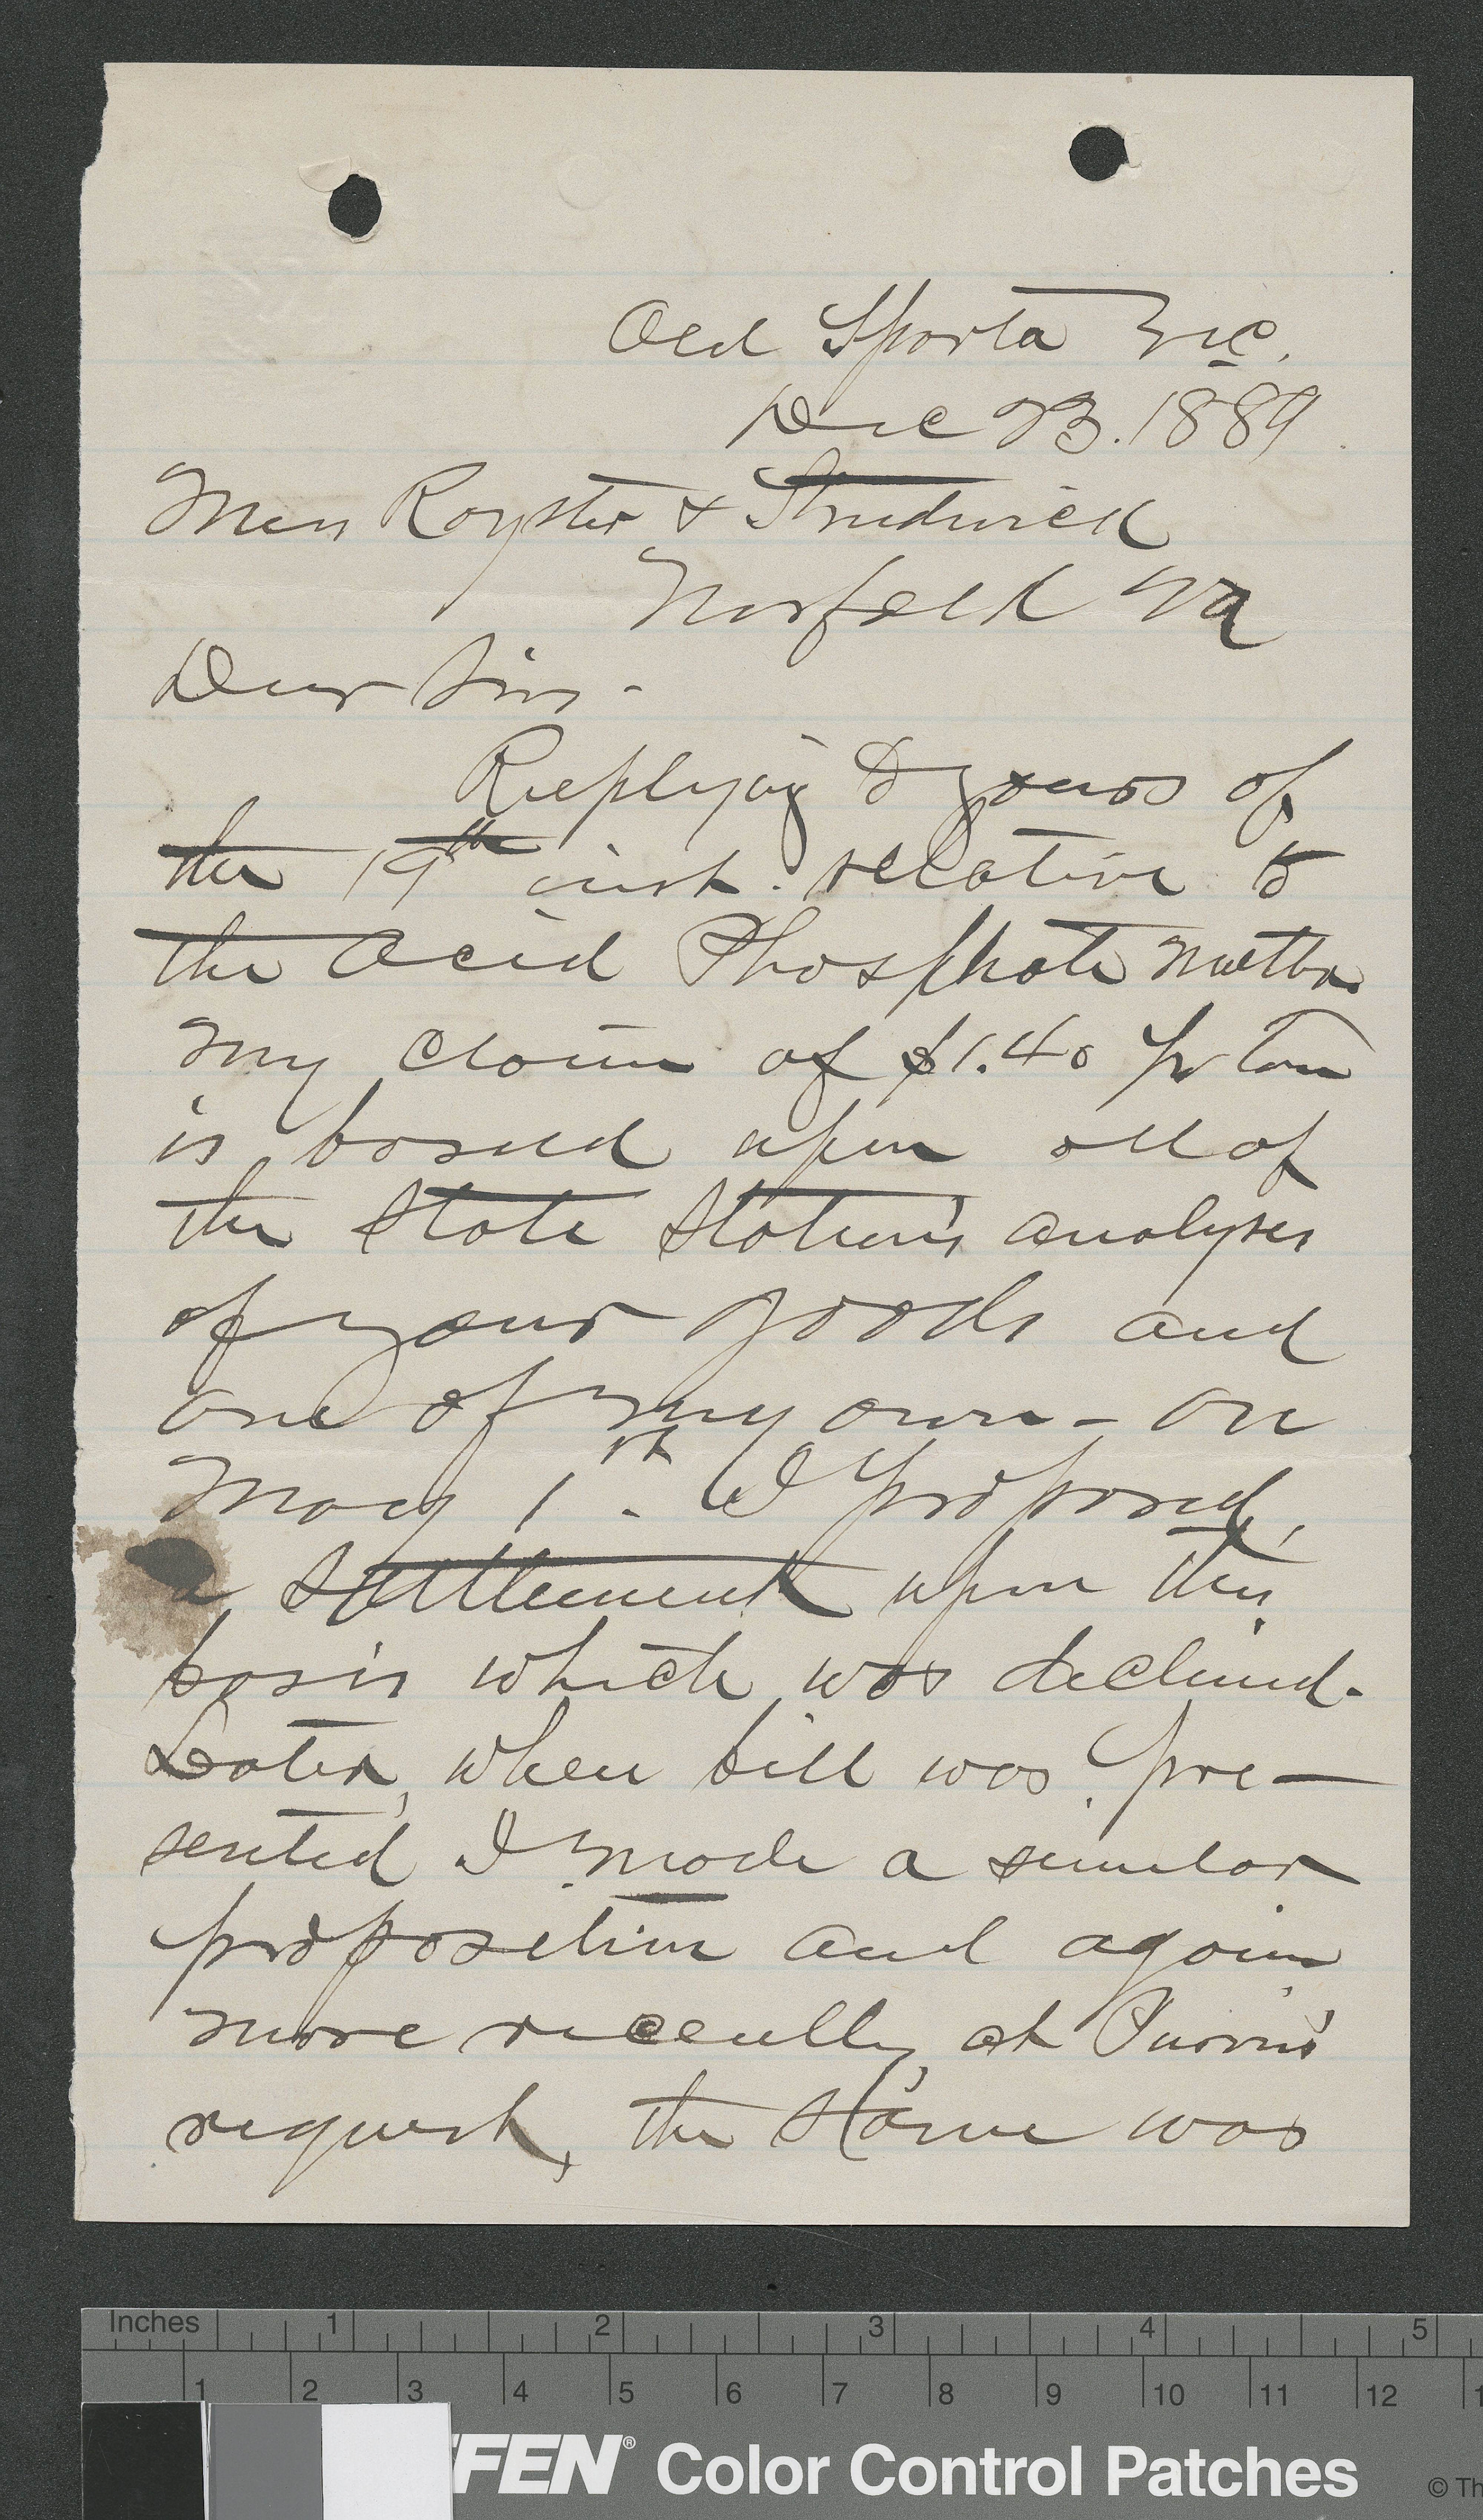 Old Sparta N.C.
Dec 23. 1889
Mess Royster & Strudwick
Norfolk Va
Dear Sirs -
Replying to yours of
the 19th inst. relative to
the Acid Phosphate matter
my claim of $1.40 pr Ton
is based upon all of
the State Station's analyses
of your goods and
one of my own - On
May 1st. I proposed
a settlement upon this
basis which was declined.
Later, when bill was pre-
sented I made a similar
proposition and again
more recently, at Purvis'
request, the same was
Inches 1 2 3 4 5
1 2 3 4 5 6 7 8 9 10 11 12
FEN® Color Control Patches © Th